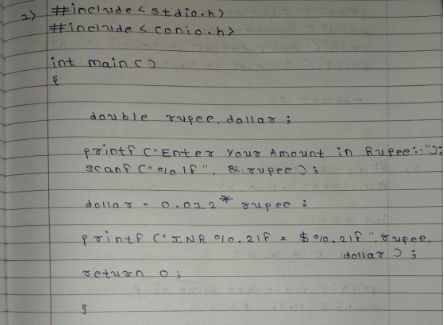 2) #include <stdio.h>
#include <conio.h>
int main()
{
double rupee, dollar;
printf ("Enter Your Amount in Rupee:-");
scanf ("%lf", &rupee);
dollar = 0.012 * rupee;
printf ("INR %.2lf = $%.2lf", rupee,
dollar);
return 0;
}